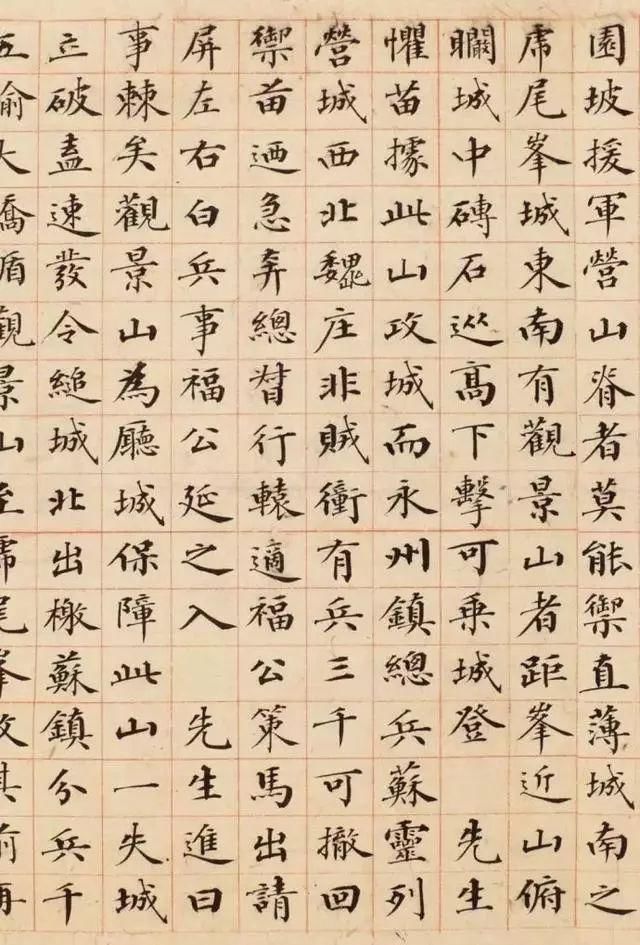 園坡援軍營山脊者莫能禦直薄城南之
虎尾峯城東南有觀景山者距峯近山俯
矙城中磚石巡高下擊可乘城登先生
懼苗據此山攻城而永州鎮總兵蘇靈列
營城西北魏庄非賊衝有兵三千可撤回
禦苗迺急弃總督行轅適福公策馬出請
屏左右白兵事福公延之入先生進曰
事棘矣觀景山為廳城保障此山一失城
立破盍速發令縋城北出檄蘇鎮分兵千
五觀景山至虎尾峯攻其前再